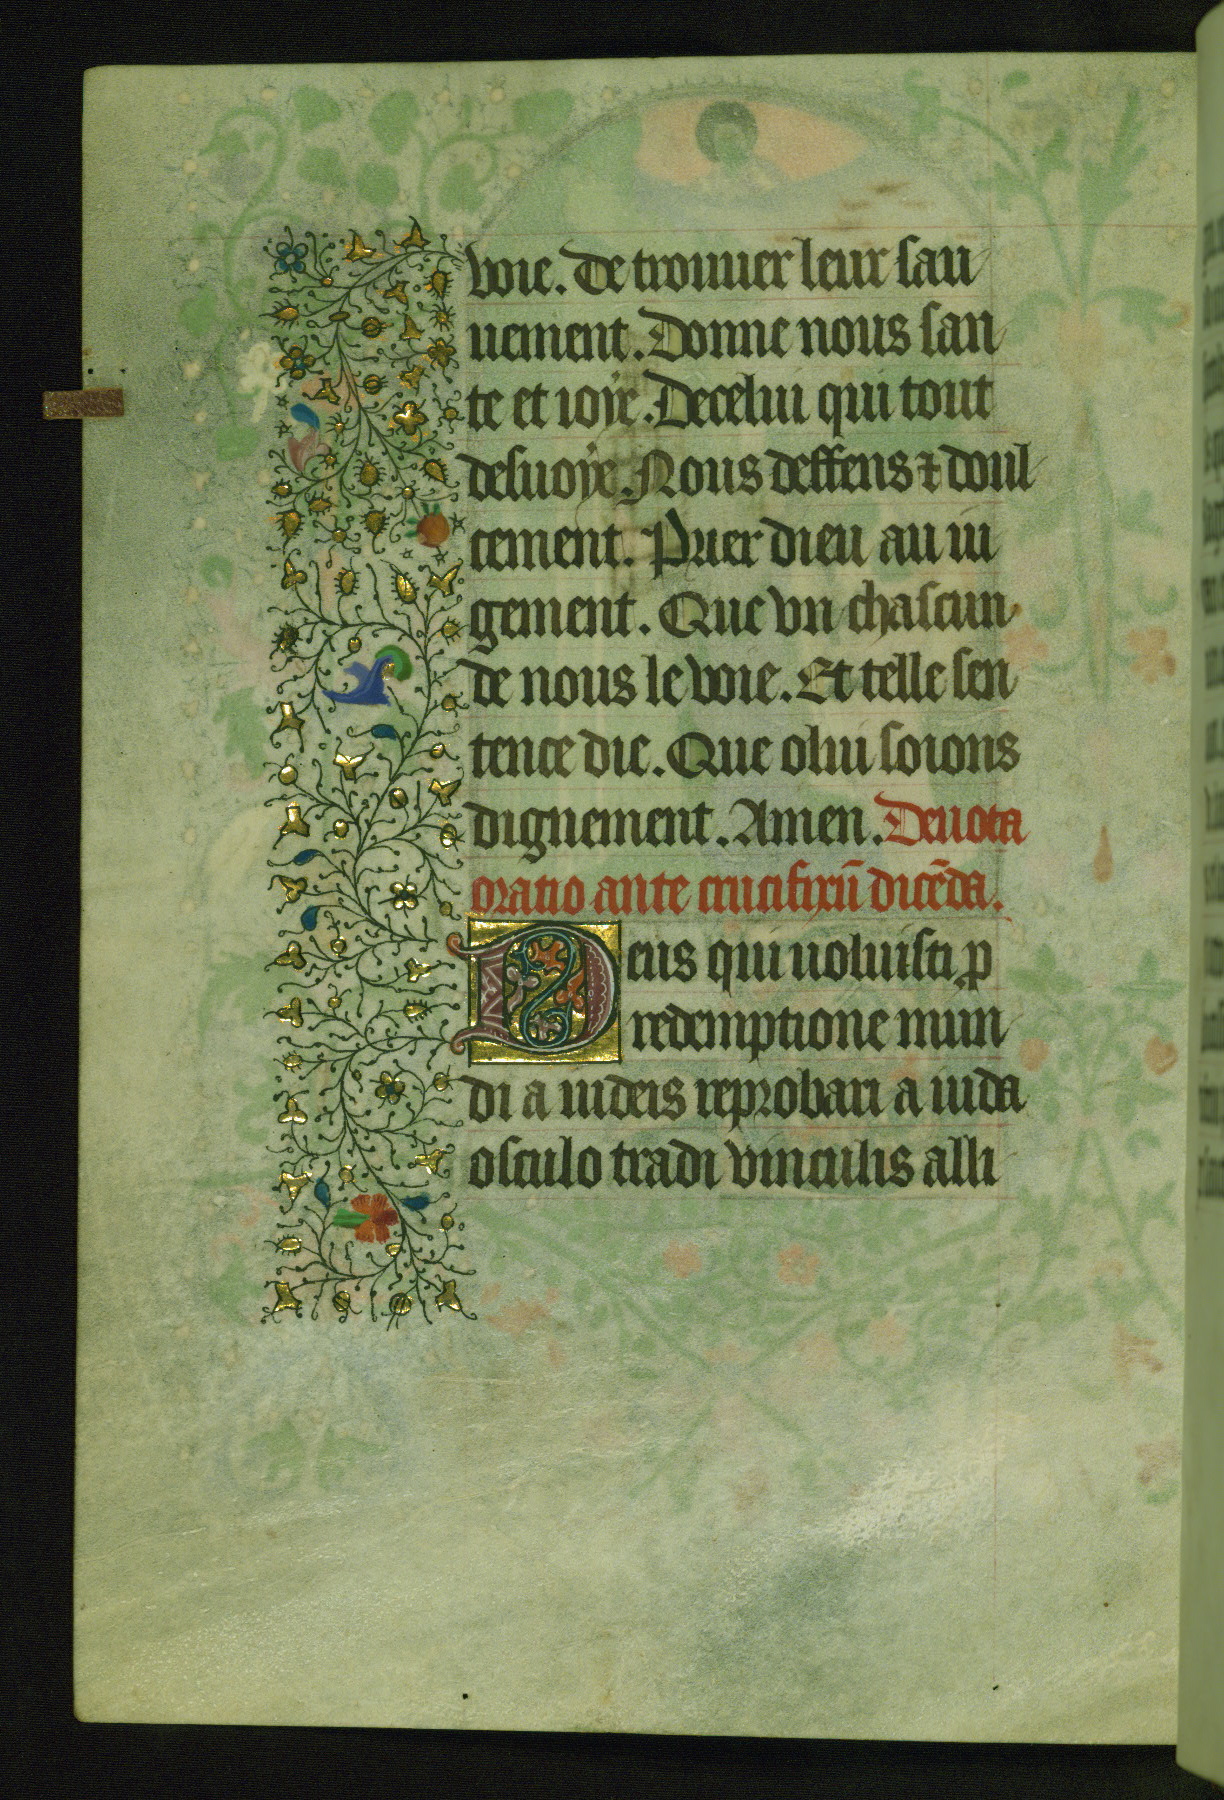 voie. De trouuer leur sau
uement. Donne nous san
te et ioÿe. De celui qui tout
desuoÿe. Nous deffens ⁊ doul
cement. Puer dieu au iu
gement. Que vn chascun
de nous le voie. Et telle sen
tence die. Que o lui soions
dignement. Amen. Deuota
oratio ante crucifixū dicēda.
Deus qui uoluisti ꝓ
redemptione mun
di a iudeis reprobari a iuda
osculo tradi vinculis alli